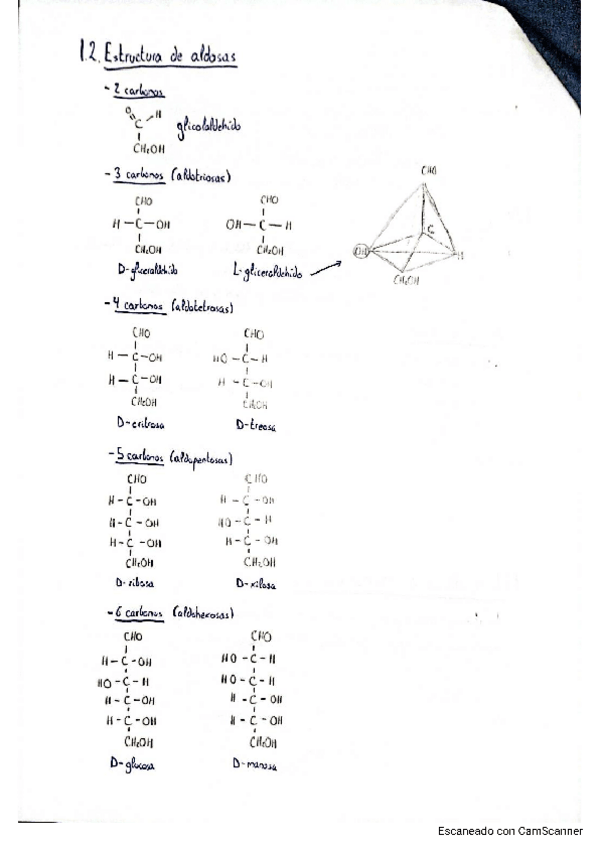 1.2. Estructura de aldosas
- 2 carbonos
O
C - H
glicolaldehido
CH₂OH
- 3 carbonos (aldotriosas)
CHO CHO CHO
H - C - OH OH - C - H C
CH₂OH CH₂OH OH H
D-gliceraldehido L-gliceraldehido CH₂OH
- 4 carbonos (aldotetrosas)
CHO CHO
H - C - OH HO - C - H
H - C - OH H - C - OH
CH₂OH CH₂OH
D-eritrosa D-treosa
- 5 carbonos (aldopentosas)
CHO CHO
H - C - OH H - C - OH
H - C - OH HO - C - H
H - C - OH H - C - OH
CH₂OH CH₂OH
D-ribosa D-xilosa
- 6 carbonos (aldohexosas)
CHO CHO
H - C - OH HO - C - H
HO - C - H HO - C - H
H - C - OH H - C - OH
H - C - OH H - C - OH
CH₂OH CH₂OH
D-glucosa D-manosa
Escaneado con CamScanner